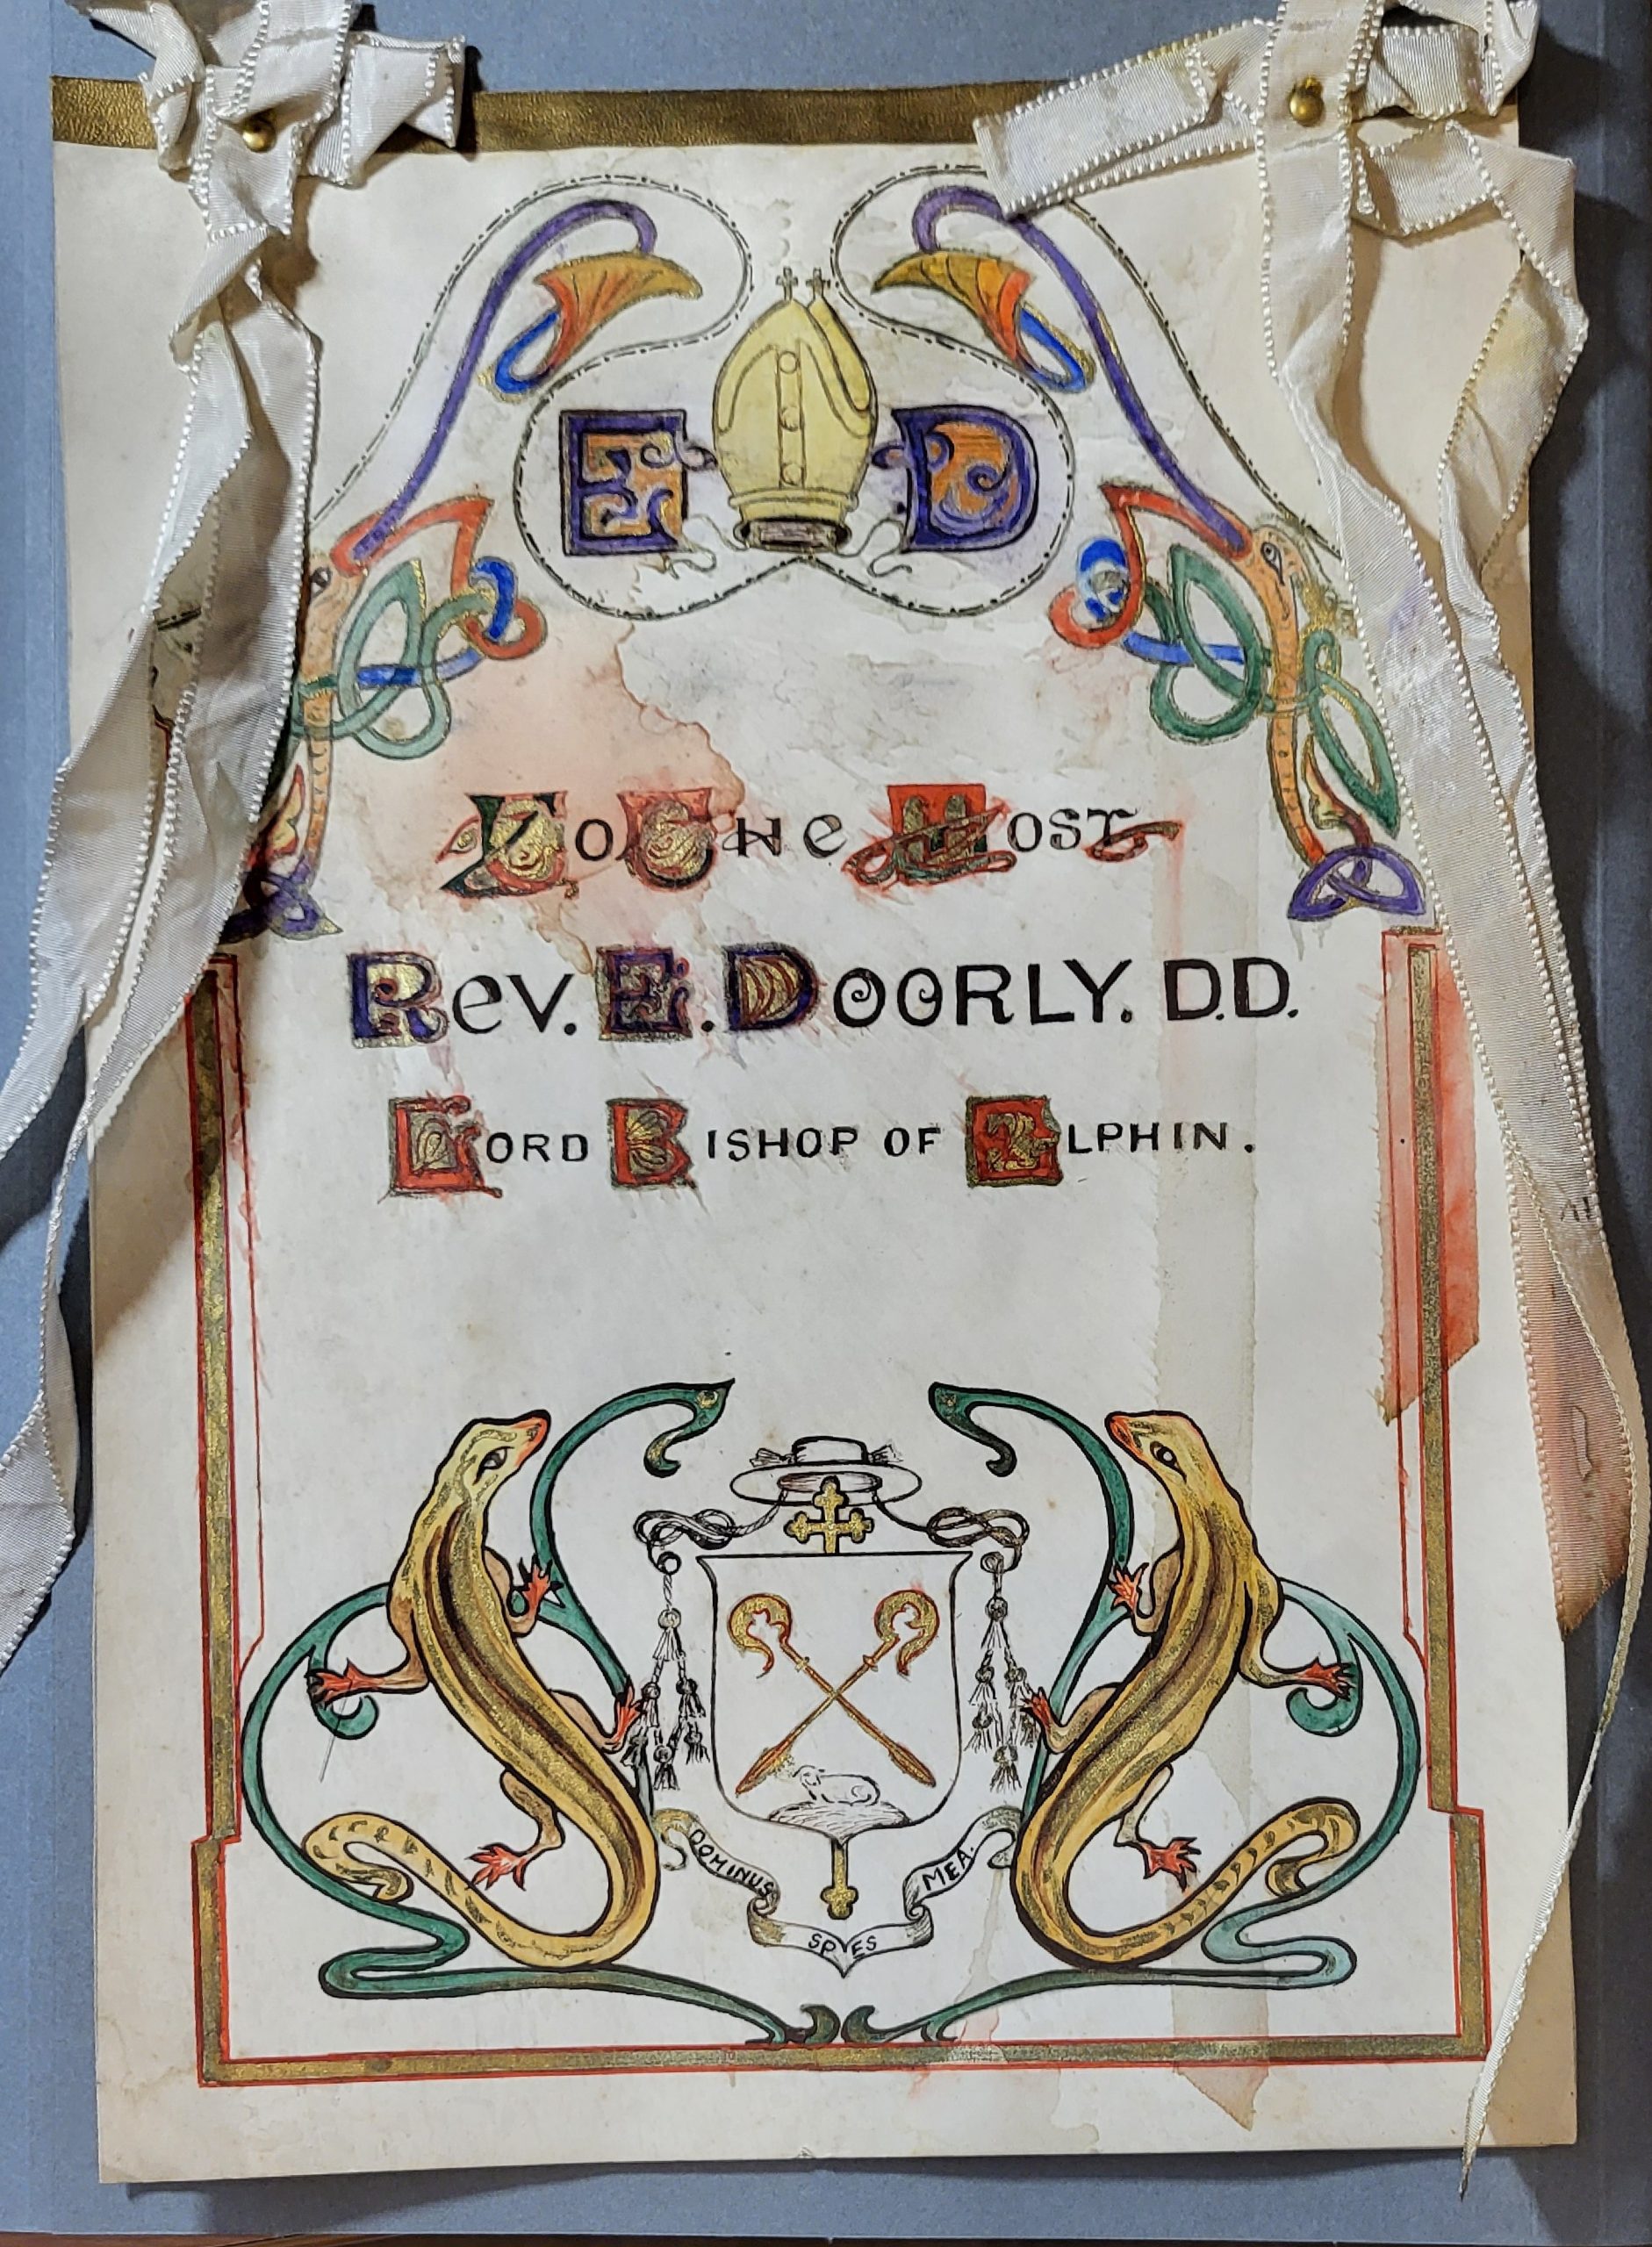 E D
To The Most
Rev. E. Doorly. D.D.
Lord Bishop of Elphin.
DOMINUS SPES MEA.